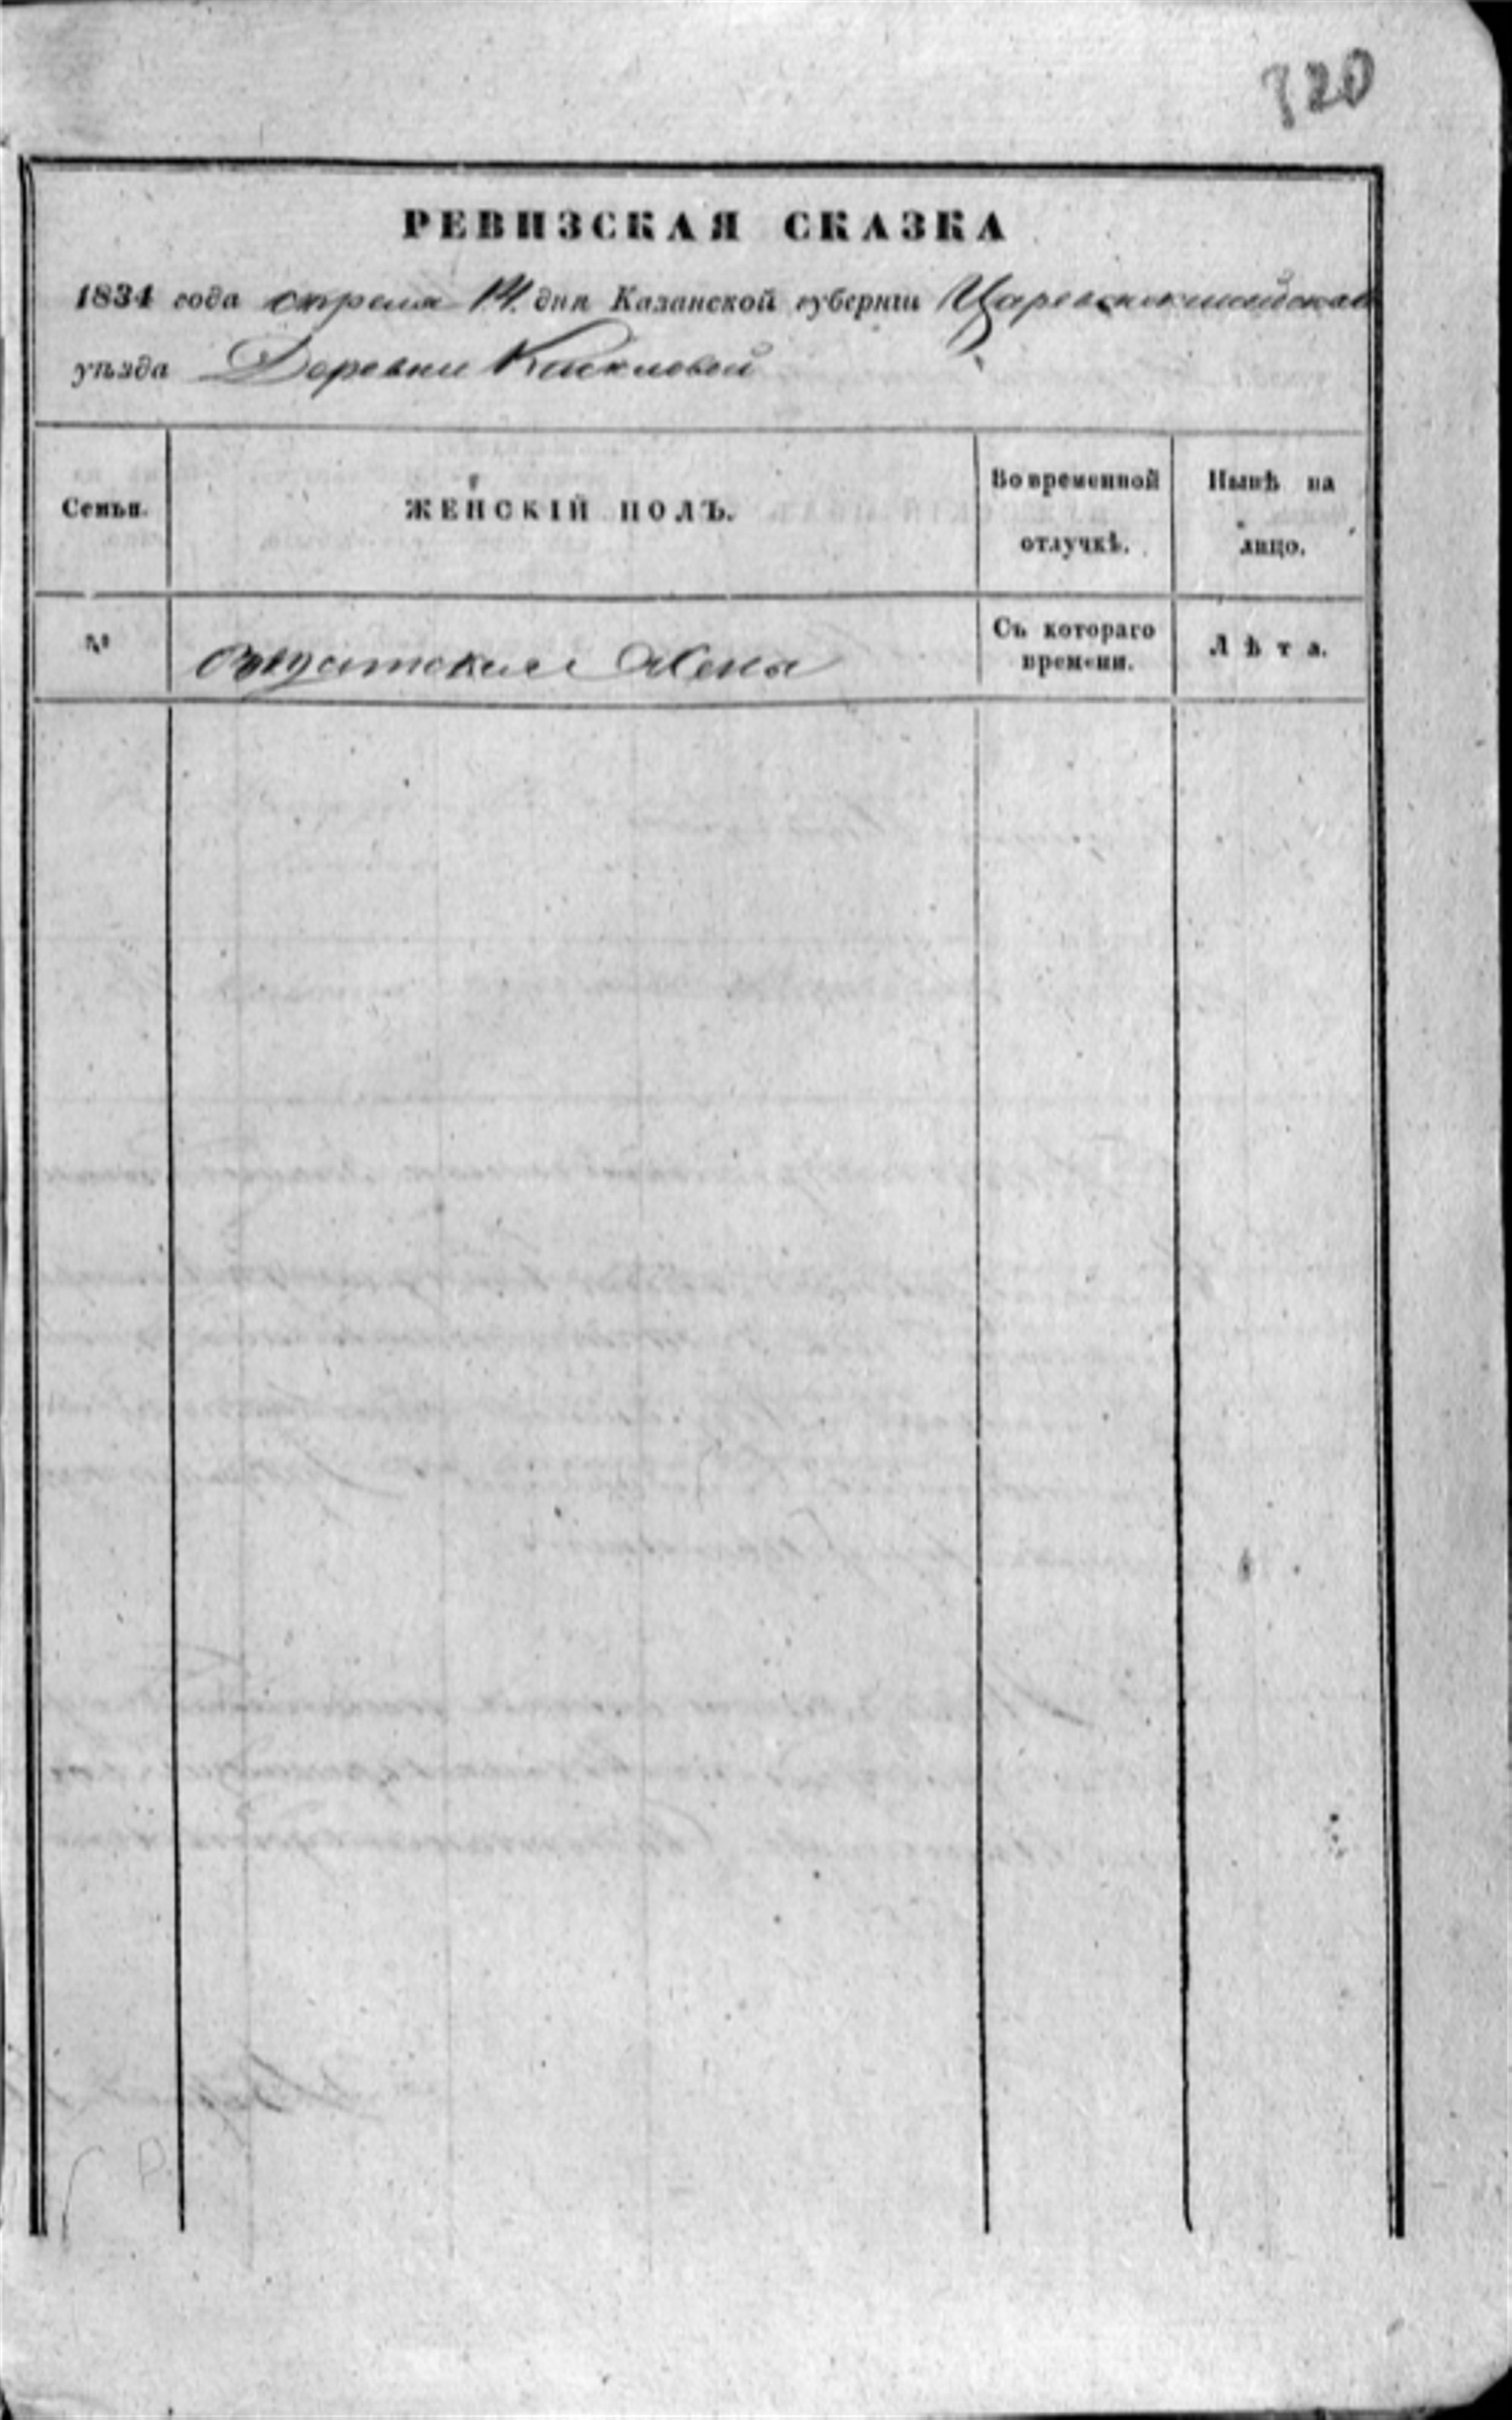 320
РЕВИЗСКАЯ СКАЗКА
1834 года апреля 14. дня Казанской губернiи Царевококшайской
уѣзда Деревни
Семьи.
ЖЕНСКIЙ ПОЛЪ.
Во временной
отлучкѣ.
Нынѣ на
лицо.
№
жена
Съ котораго
времени.
Лѣта.